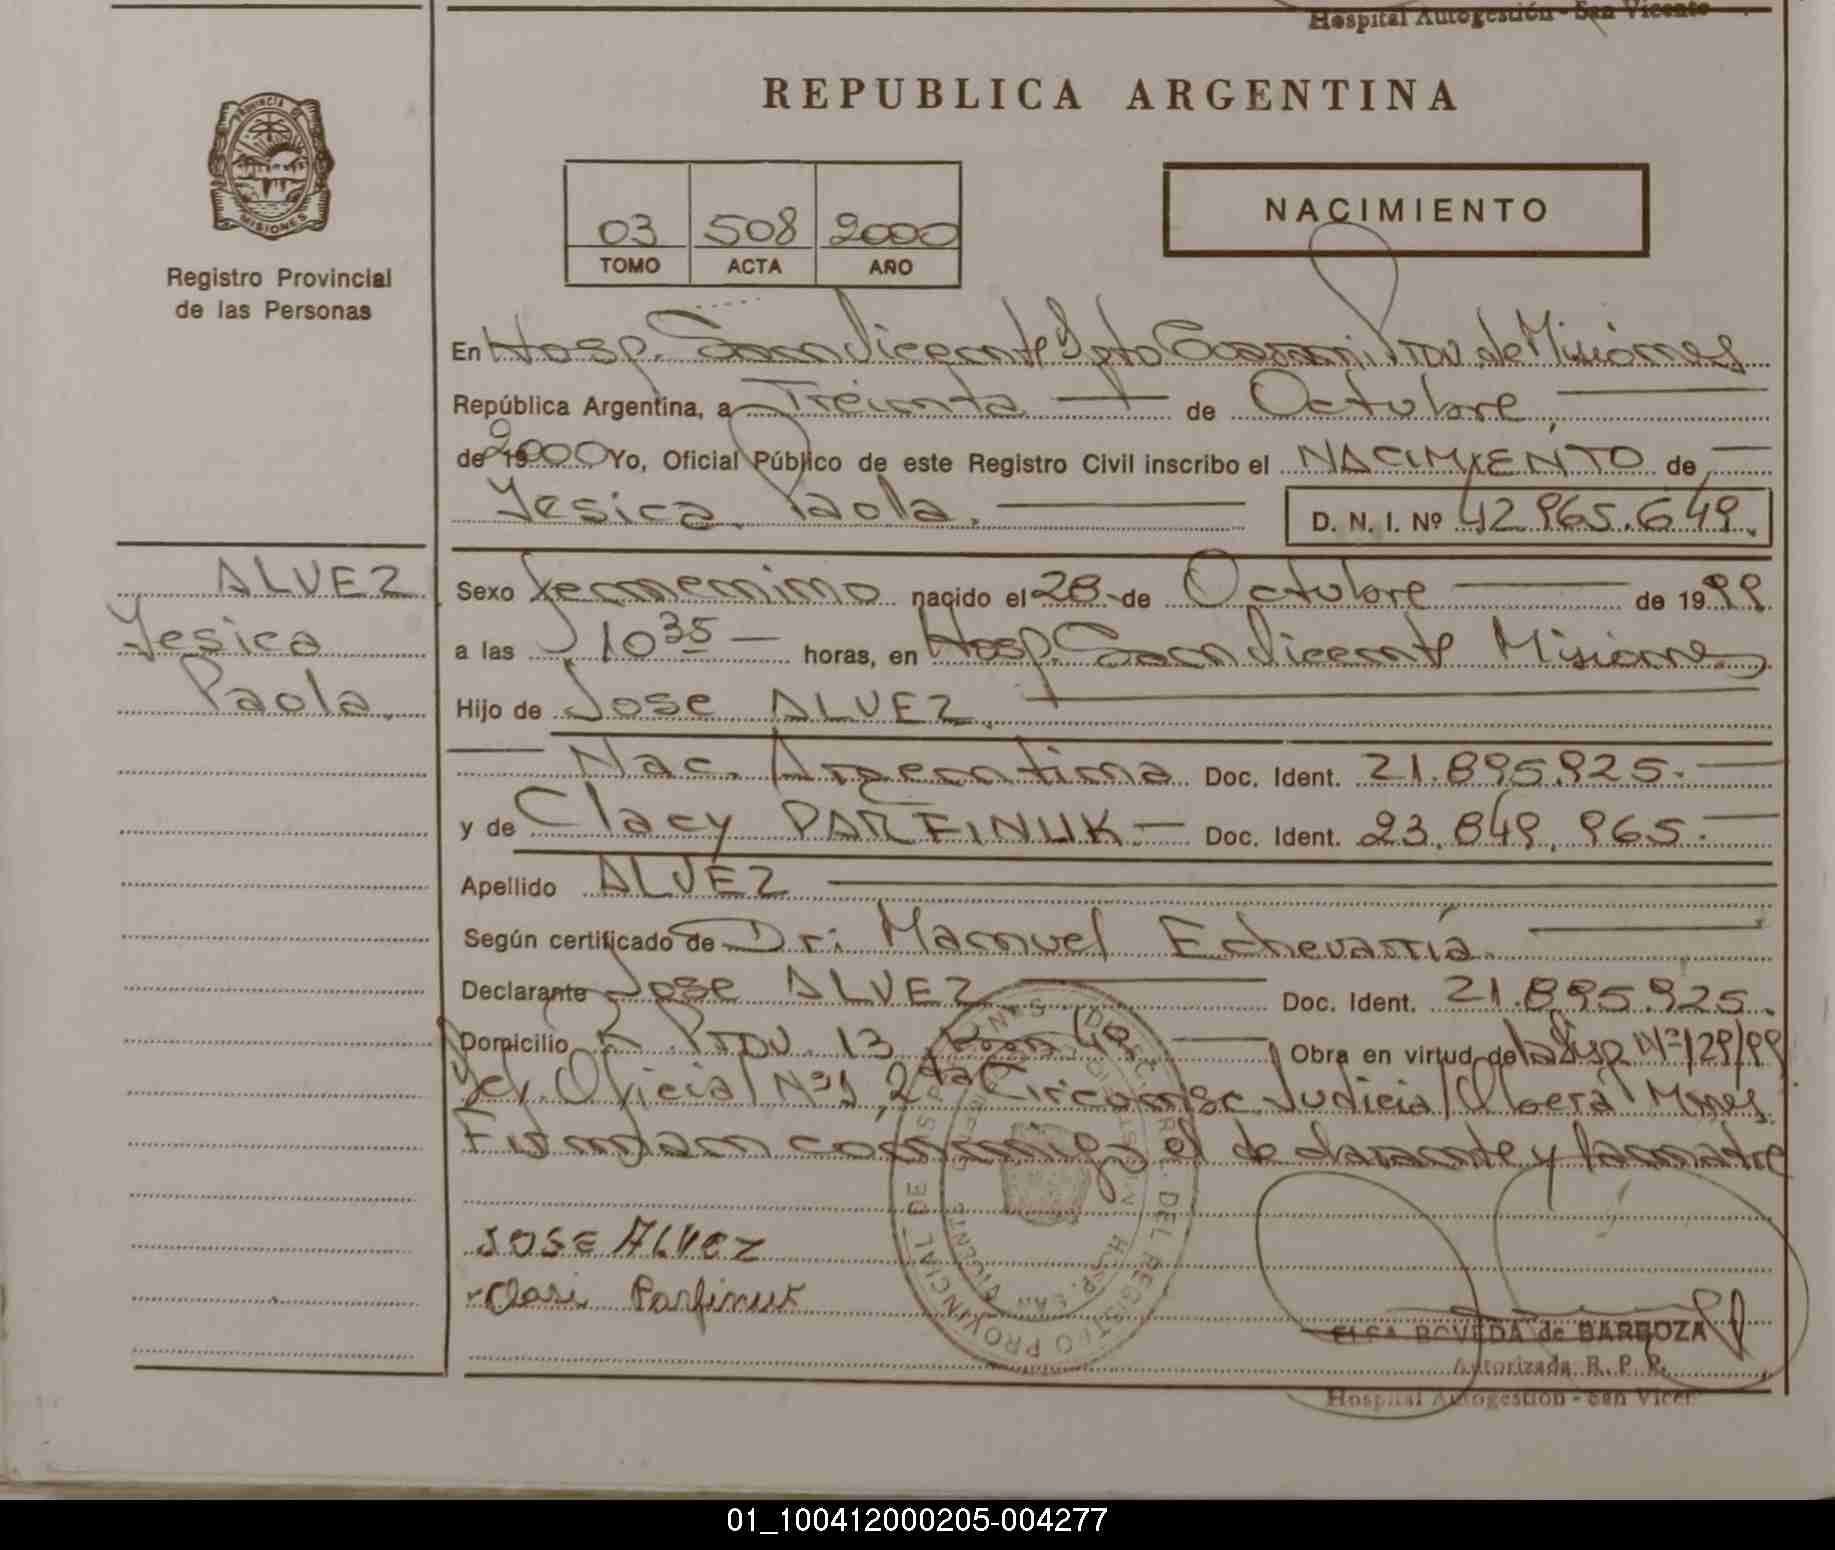 Hospital Autogestión - San Vicente
REPUBLICA ARGENTINA
PROVINCIA DE
MISIONES
Registro Provincial
de las Personas
03 508 2000
TOMO ACTA AÑO
NACIMIENTO
En Hosp. San Vicente Dpto Guarani, Prov. de Misiones
República Argentina, a Treinta de Octubre
de 2000 Yo, Oficial Público de este Registro Civil inscribo el NACIMIENTO de
Yesica Paola. D. N. I. Nº 42.965.649.
ALVEZ
Yesica
Paola.
Sexo femenino nacido el 28 de Octubre de 1999
a las 10 35 horas, en Hosp. San Vicente Misiones
Hijo de Jose ALVEZ.
Nac. Argentina Doc. Ident. 21.895.925.
y de Clacy PARFINUK Doc. Ident. 23.849.965.
Apellido ALVEZ
Según certificado de Dr. Manuel Echevarría.
Declarante Jose ALVEZ Doc. Ident. 21.895.925.
Domicilio R. Prov. 13 Km 49 Obra en virtud de la Disp Nº 129/99
Def. Oficial Nº 1, 2da Circunsc. Judicial Oberá Mnes.
Firman conmigo el declarante y la madre
JOSE ALVEZ
Clasi Parfinuk
REGISTRO PROVINCIAL DE
HOSP. SAN VICENTE
ELSA POVEDA de BARBOZA
Autorizada R. P. P.
Hospital Autogestión - San Vicen
01_100412000205-004277